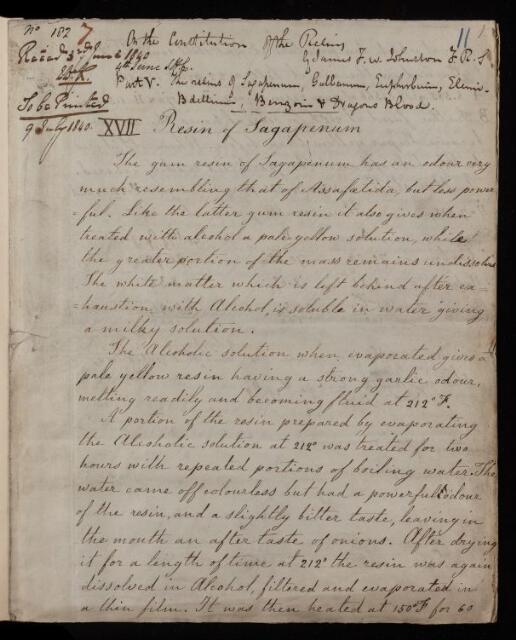 No 182
7
11
On the Constitution of the Resins
Recd 3rd June 1840
By James F. W. Johnston F. R. S.
4th June 1840.
Part V. The resins of Sagapenum, Galbanum, Euphorbium, Elemi-
Bdellium, Benzoin & Dragons Blood.
To be Printed
9 July 1840.
XVII Resin of Sagapenum
The gum resin of Sagapenum has an odour very
much resembling that of Assafœtida, but less power
=ful. Like the latter gum resin it also gives when
treated with alcohol a pale yellow solution, while
the greater portion of the mass remains undissolved
The white matter which is left behind after ex=
=haustion with Alcohol, is soluble in water giving
a milky solution.
The Alcoholic solution when evaporated gives a
pale yellow resin having a strong garlic odour,
melting readily and becoming fluid at 212° F.
A portion of the resin prepared by evaporating
the Alcoholic solution at 212° was treated for two
hours with repeated portions of boiling water. The
water came off colourless but had a powerful odour
of the resin, and a slightly bitter taste, leaving in
the mouth an after taste of onions. After drying
it for a length of time at 212° the resin was again
dissolved in Alcohol, filtered and evaporated in
a thin film. It was then heated at 150° F for 60